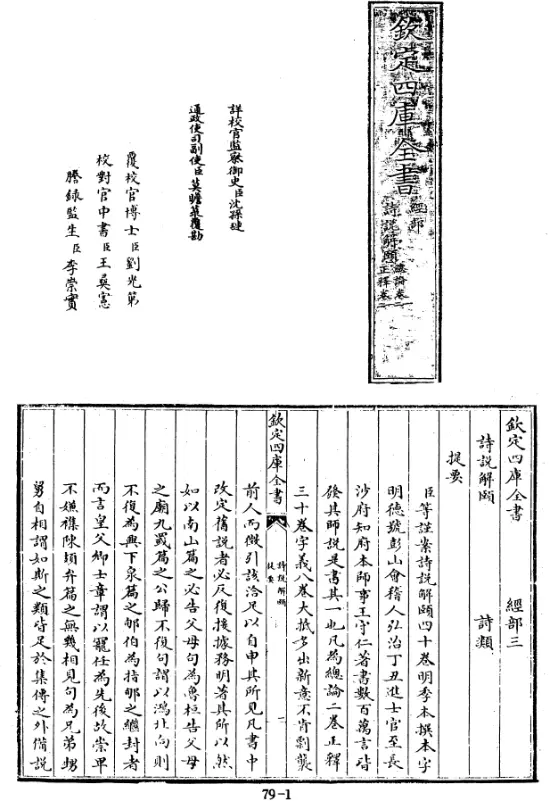 欽定四庫全書 經部
詩說解頤 總論卷二
正釋卷二
詳校官監察御史臣沈孫璉
通政使司副使臣莫瞻菉覆勘
覆校官博士臣劉光第
校對官中書臣王奭憲
謄錄監生臣李崇實
欽定四庫全書 經部三
詩說解頤 詩類
提要
臣等謹案詩說解頤四十卷明季本撰本字
明德號彭山會稽人弘治丁丑進士官至長
沙府知府本師事王守仁著書數百萬言皆
發其師說是書其一也凡為總論二卷正釋
三十卷字義八卷大抵多出新意不肯剽襲
欽定四庫全書
詩說解頤
提要
一
前人而徵引該洽足以自申其所見凡書中
改定舊說者必反復援據務明著其所以然
如以南山篇之必告父母句為魯桓告父母
之廟九罭篇之公歸不復句謂以鴻北向則
不復為興下泉篇之郇伯為指郇之繼封者
而言皇父卿士章謂以寵任為先後故崇卑
不嫌襍陳頍弁篇之無幾相見句為兄弟甥
舅自相謂如斯之類皆足於集傳之外備說
79-1